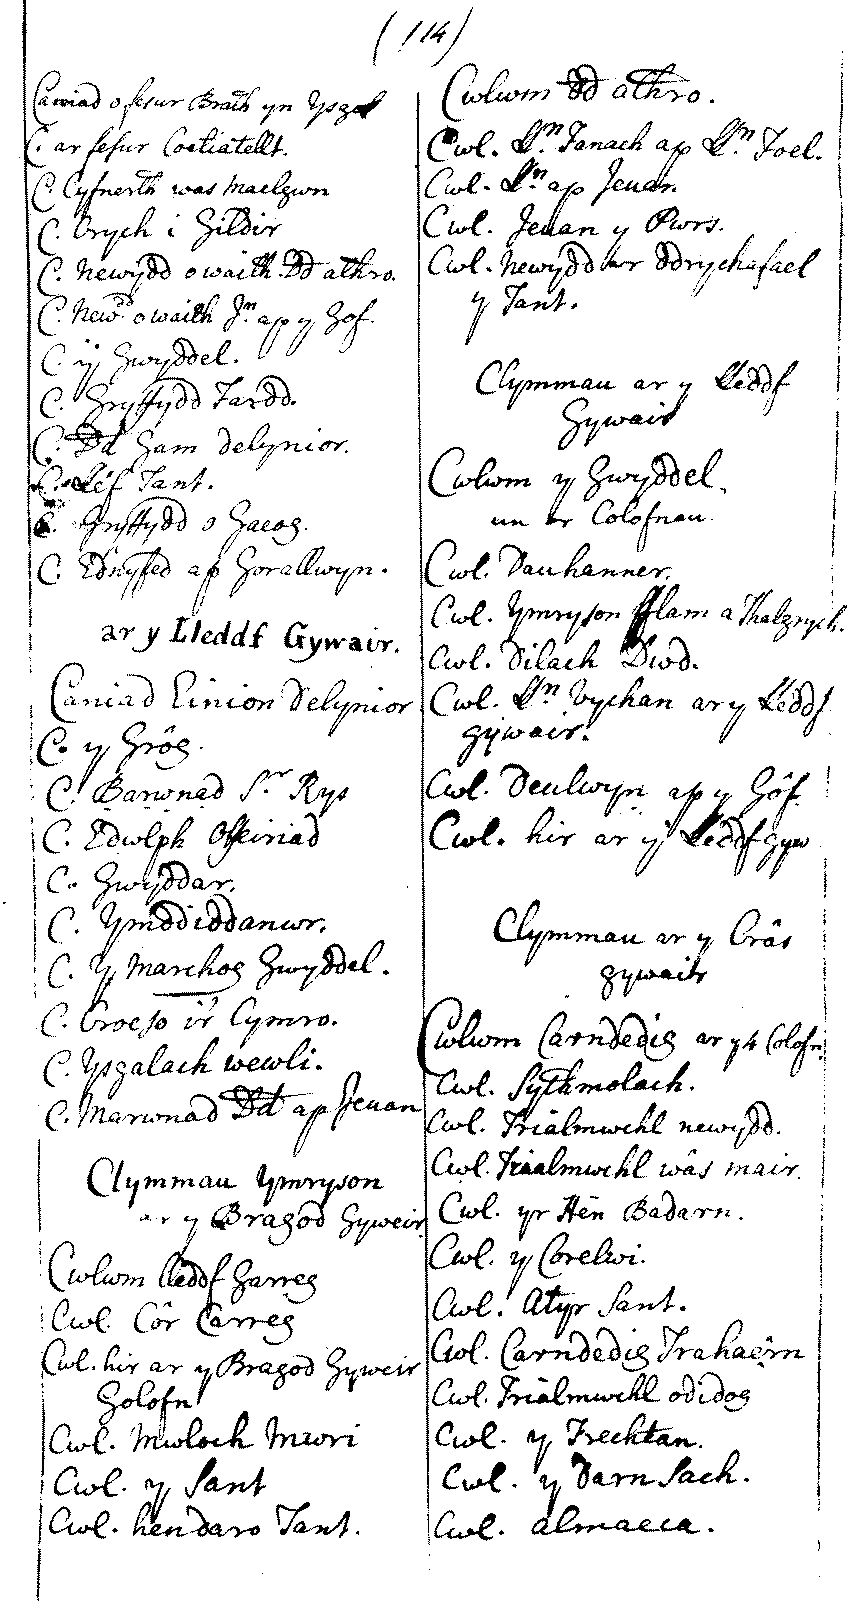 (114)
Caniad o fesur Brath yn Ysgol
C. ar fesur Coetiatellt.
C. Cyfnerth was Maelgwn
C. Crych i Gildir
C. Newydd o waith Dd athro.
C. New.dd o waith Jn ap y Gof.
C. y Gwyddel.
C. Gryffydd Fardd.
C. Dd Gam Delynior.
C. Lléf Tant.
C. Gryffydd o Gaeog.
C. Ednyfed ap Gorallwyn.
ar y Lleddf Gywair.
Caniad Einion Delynior
C. y Grôg.
C. Barwnad Sr Rys
C. Edwlph Offeiriad
C. Gwyddar.
C. Ymddiddanwr.
C. Y Marchog Gwyddel.
C. Croeso i'r Cymro.
C. Ysgalach wewli.
C. Marwnad Dd ap Jeuan
Clymmau Ymryson
ar y Bragod Gyweir
Cwlwm lleddf Garreg
Cwl. Côr Carreg
Cwl. hir ar y Bragod Gyweir
Golofn
Cwl. Mwloch Mwri
Cwl. y Sant
Cwl. hendaro Tant.
Cwlwm Dd athro.
Cwl. Lln Fanach ap Lln Foel.
Cwl. Lln ap Jeuan.
Cwl. Jeuan y Pwrs.
Cwl. Newydd ar ddrychafael
y Tant.
Clymmau ar y Lleddf
Gywair
Cwlwm y Gwyddel
un or Colofnau.
Cwl. Dauhanner.
Cwl. Ymryson fflam a Thalgrych.
Cwl. Dilach Dwd.
Cwl. Lln Vychan ar y Lleddf
gywair.
Cwl. Deulwyn ap y Gôf.
Cwl. hir ar y Lleddf gyw
Clymmau ar y Crâs
gywair
Cwlwm Carndedig ar y 4 Colofn
Cwl. Sythmolach.
Cwl. Trialmwchl newydd.
Cwl. Trialmwchl wâs mair.
Cwl. yr Hên Badarn.
Cwl. y Corelwi.
Cwl. Atyr Sant.
Cwl. Carndedig Trahaern
Cwl. Trialmwchl odidog
Cwl. y Trechtan.
Cwl. y Darn Sach.
Cwl. almaeca.